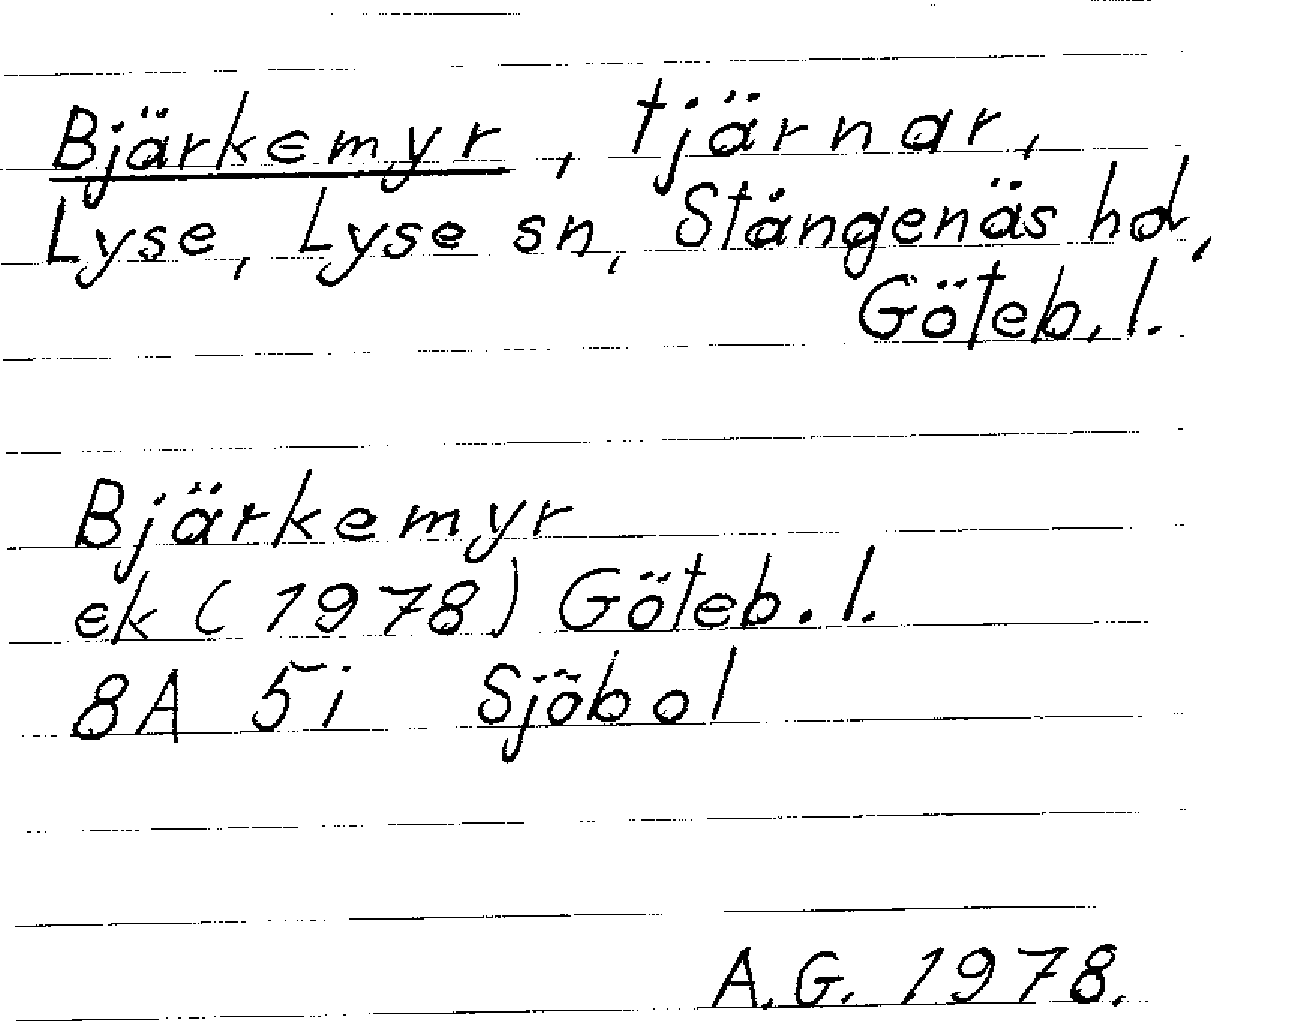 Bjärkemyr, tjärnar,
Lyse, Lyse sn, Stångenäs hd,
Göteb. l.
Bjärkemyr
ek (1978) Göteb. l.
8A 5i Sjöbol
A.G. 1978.